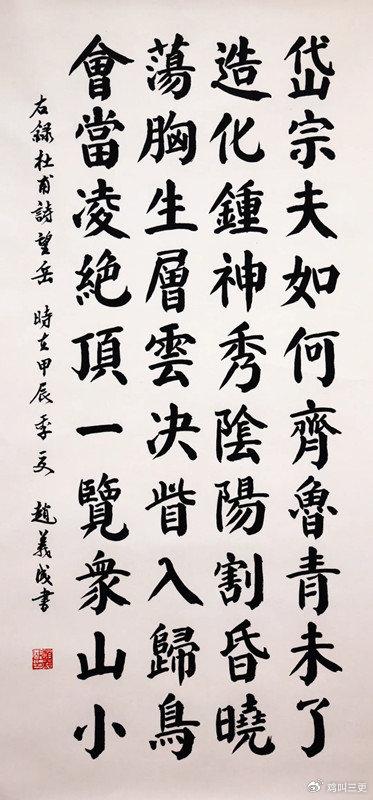 岱宗夫如何齊魯青未了
造化鍾神秀陰陽割昏曉
蕩胸生層雲决眥入歸鳥
會當凌絶頂一覽衆山小
右録杜甫詩望岳 時在甲辰季夏 趙義成書
鸡叫三更